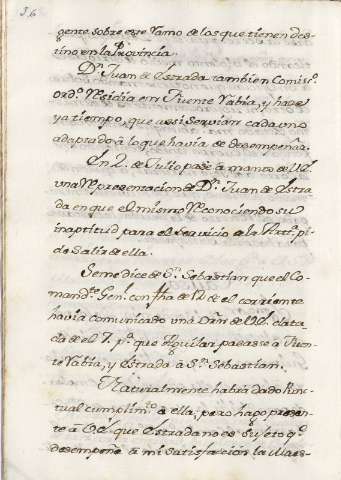 56
gente sobre este ramo de los que tienen des-
tino en la Provincia.
Dn. Juan de Estrada tambien Comisº.
ordº. residia en Fuente rabia, y hace
ya tiempo, que assi servian cada uno
adaptado à lo que havia de desempeñar.
En 2. de Julio pasè à manos de
una representacion de Dn. Juan de Estra-
da en que el mismo reconociendo su
inaptitud para el servicio de la Artª. pi-
de salir de ella.
Se me dice de Sn. Sebastian que el Co-
mandte. Genl. con fha de 12 de el corriente
havia comunicado una de data-
da de el 7. pª. que Aguilar pasasse à Fuen-
te rabia, y Estrada à Sn. Sebastian.
Naturalmente habrá dado Punc-
tual cumplimto. à ella; pero hago presen-
te à que Estrada no es Sujeto qe.
desempeñe à mi satisfaccion la Maes-